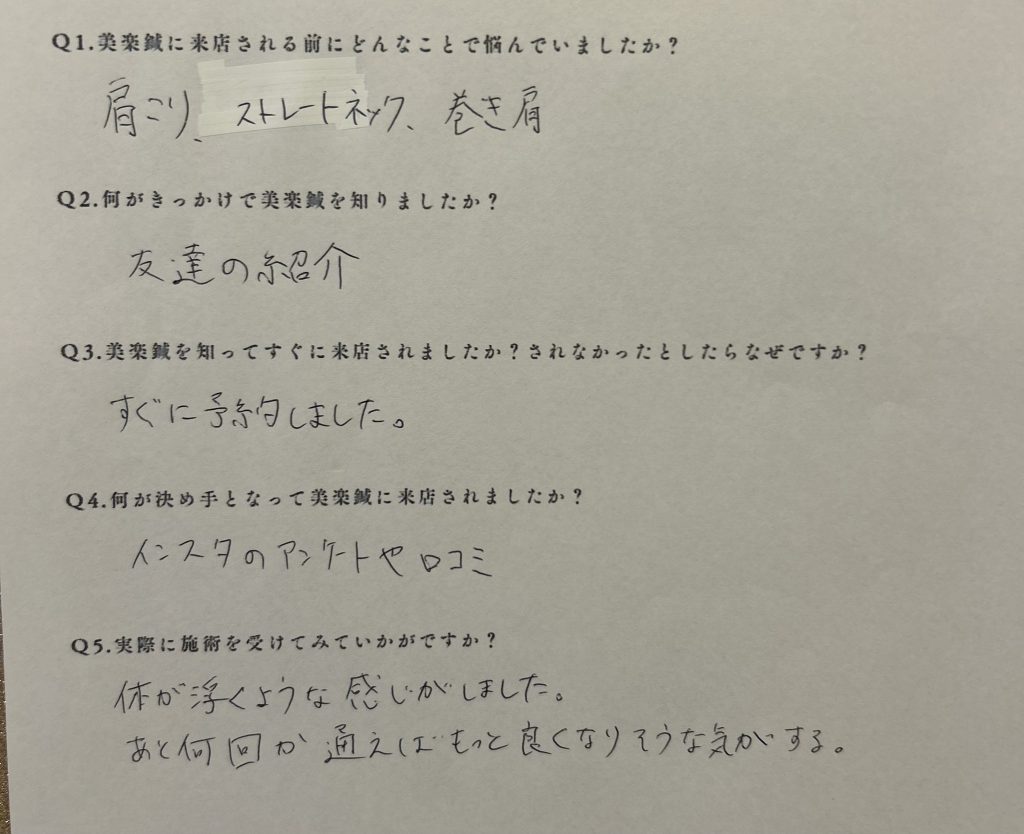 Q1.美楽鍼に来店される前にどんなことで悩んでいましたか？
肩こり、ストレートネック、巻き肩
Q2.何がきっかけで美楽鍼を知りましたか？
友達の紹介
Q3.美楽鍼を知ってすぐに来店されましたか？されなかったとしたらなぜですか？
すぐに予約しました。
Q4.何が決め手となって美楽鍼に来店されましたか？
インスタのアンケートや口コミ
Q5.実際に施術を受けてみていかがですか？
体が浮くような感じがしました。
あと何回か通えばもっと良くなりそうな気がする。